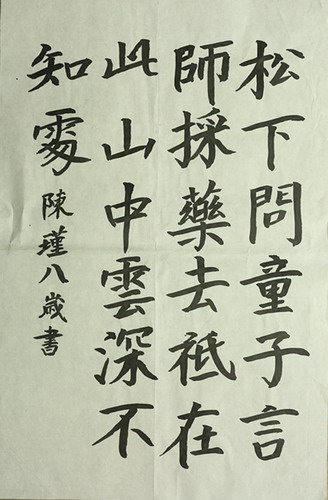 松下問童子言
師採藥去祗在
此山中雲深不
知處
陳瑾八歲書